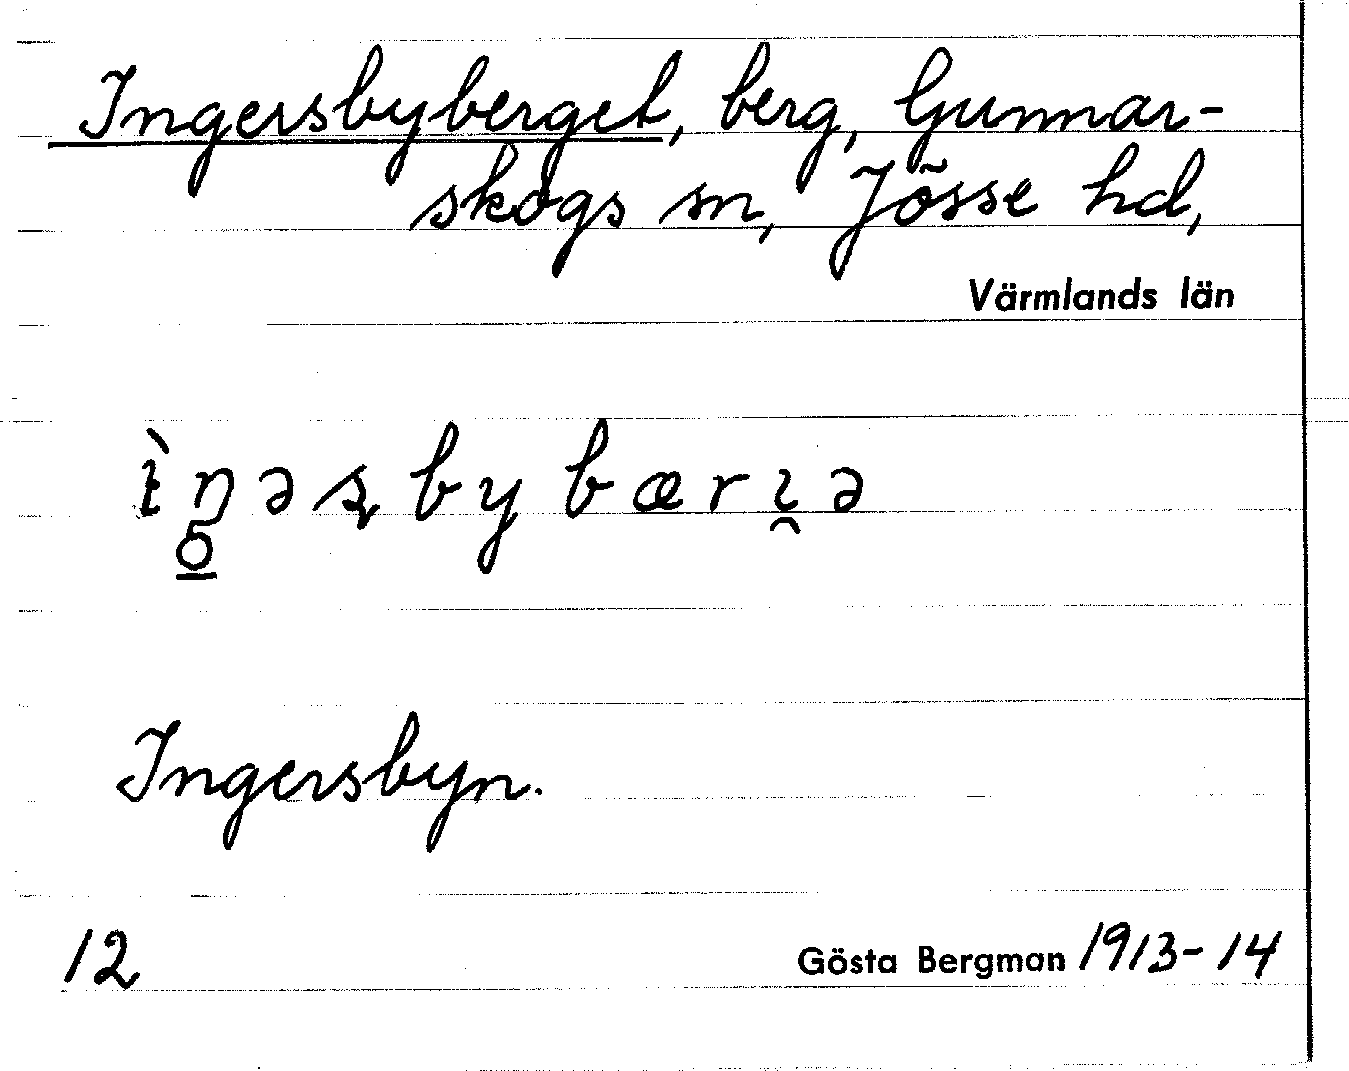 Ingersbyberget, berg, Gunnar-
skogs sn, Jösse hd,
Värmlands län
Ingersbyn.
12 Gösta Bergman 1913-14